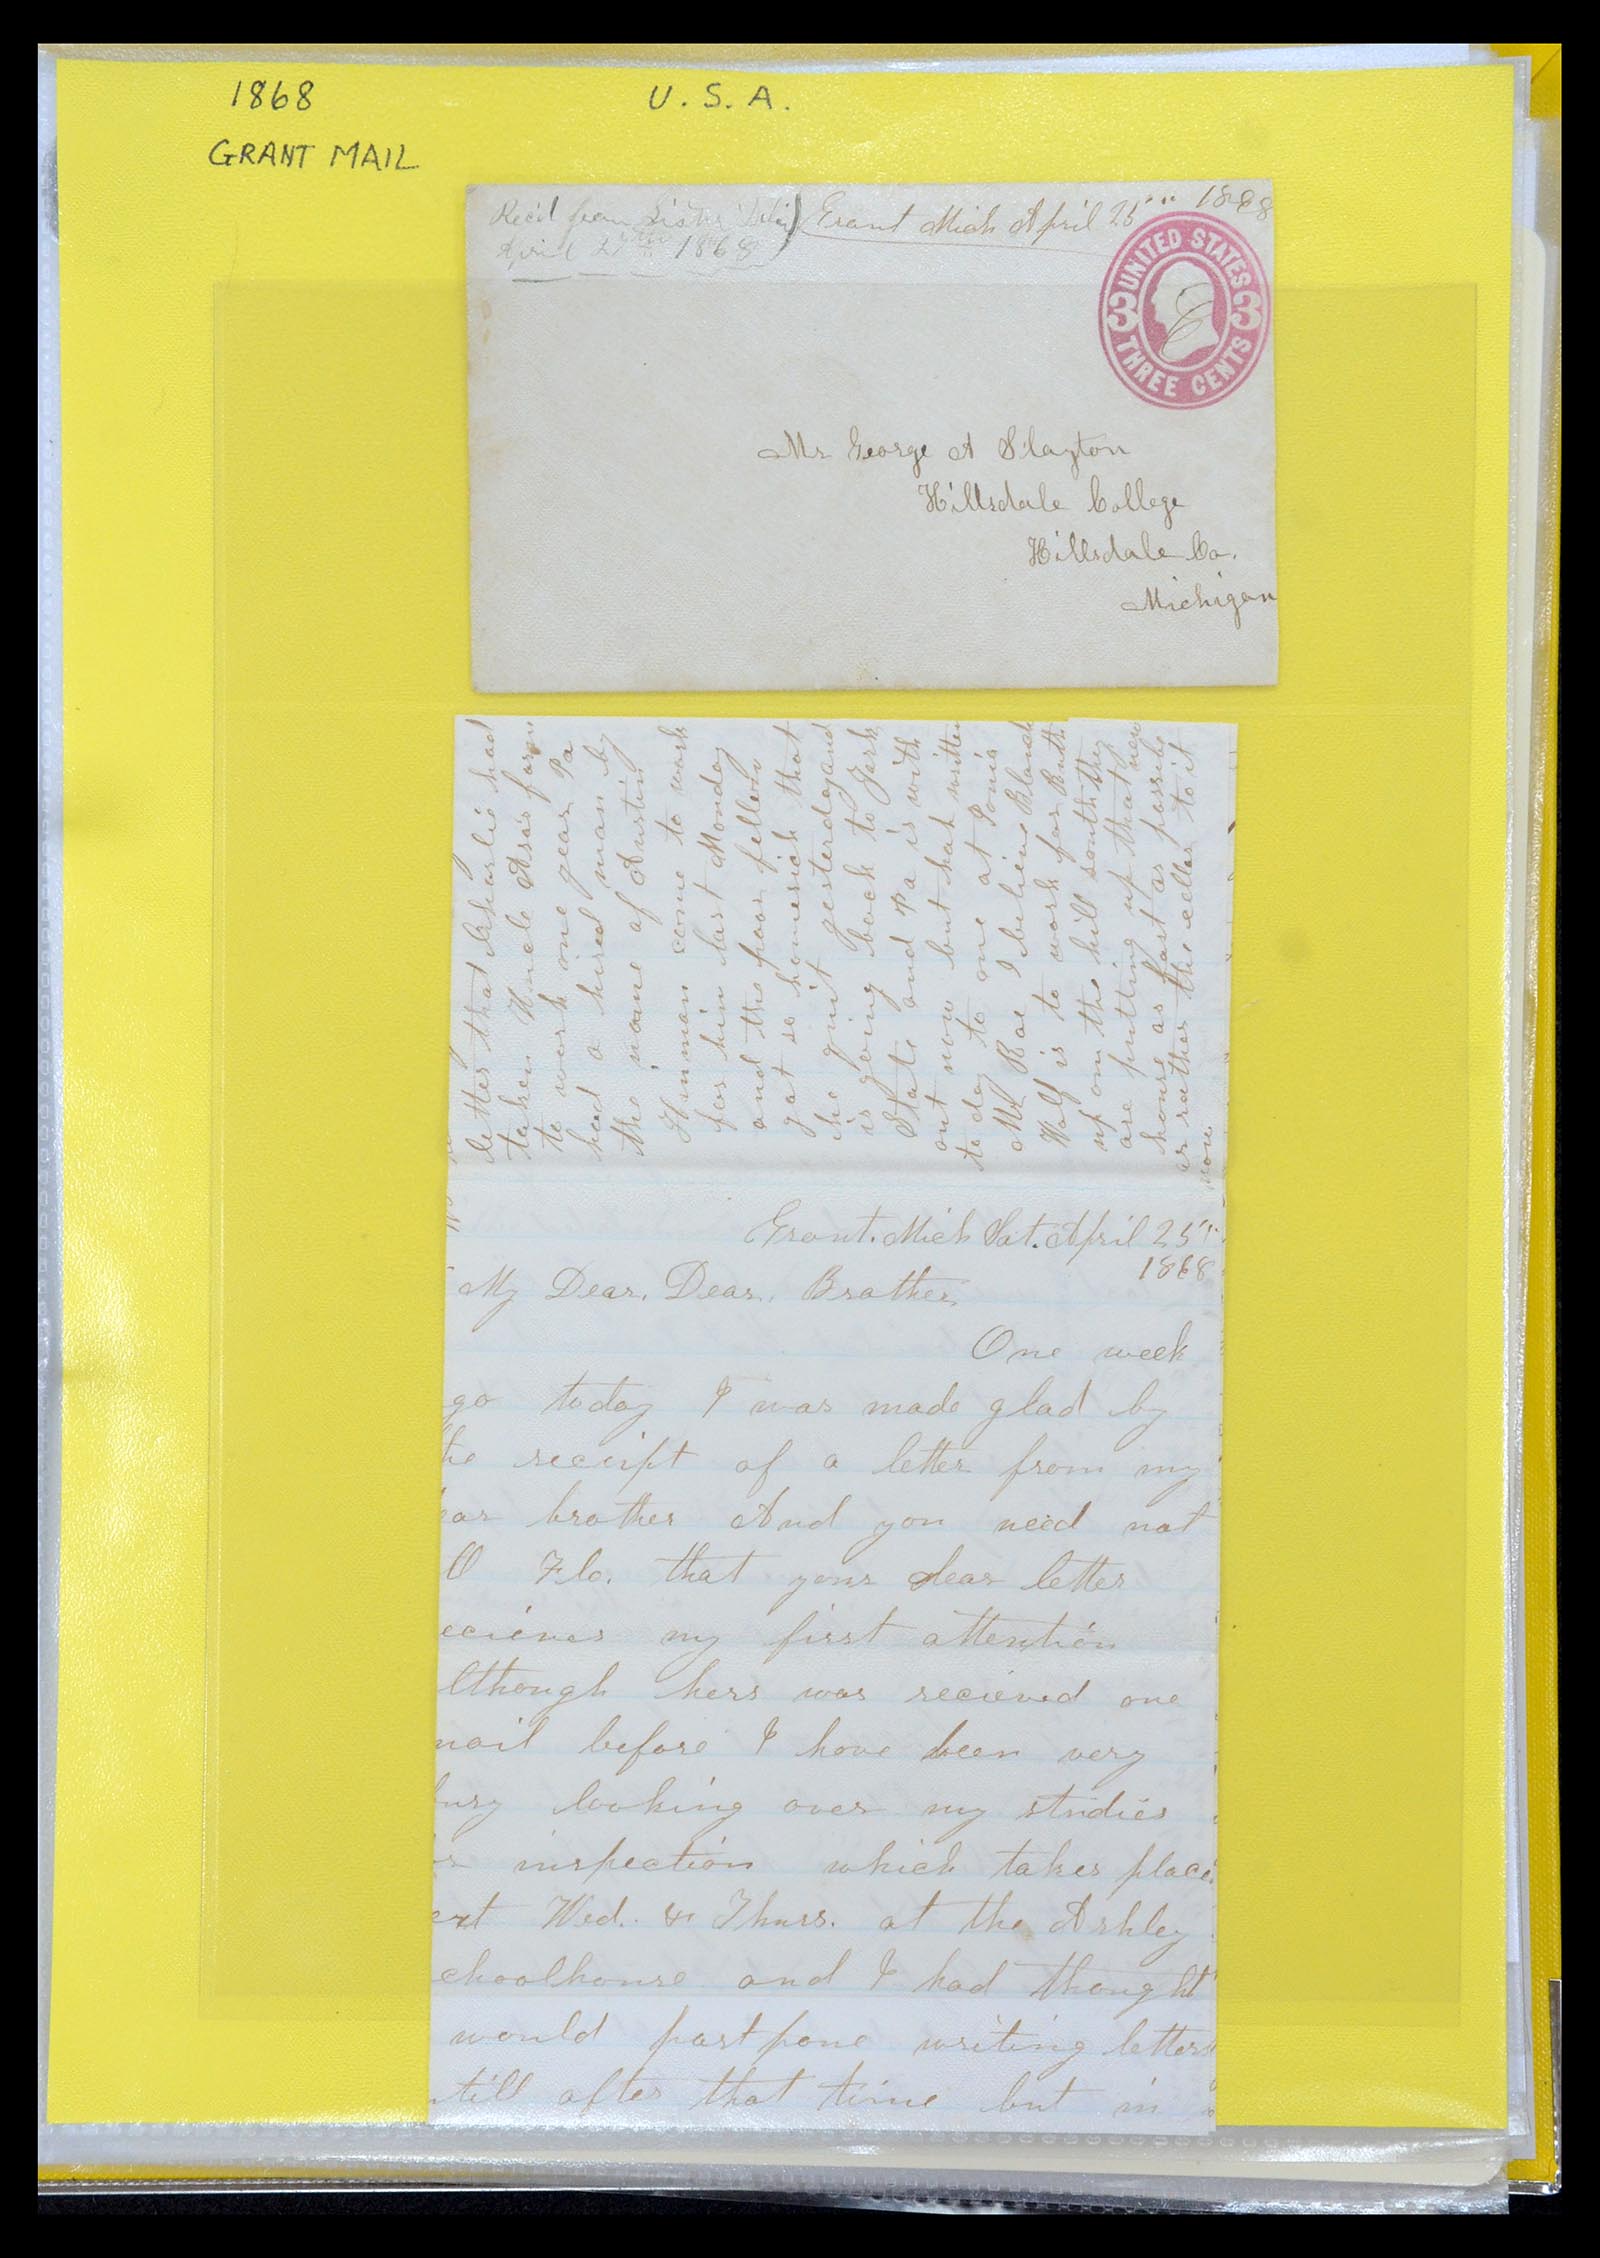 1868
U. S. A.
GRANT MAIL
Rec'd from Sister
April 1868
Grant Mich April 25"" 1868
UNITED STATES
3 3
THREE CENTS
Mr George A Slayton
Hillsdale College
Hillsdale Co.
Michigan
letter that Charlie had
taken Uncle Asa's farm
to work one year Pa
had a hired man by
the name of Austin
Hinman come to work
for him last Monday
and the poor fellow
got so homesick that
he quit yesterday and
is going back to York
State and Pa is with
out now but has written
to day to one at Ionia
Mr Roe I believe Bland
Wolf is to work for Ruth
up on the hill south they
are putting up that new
house as fast as possible
or rather the cellar to it
now.
Grant. Mich Sat. April 25"
1868
My Dear. Dear. Brother
One week
go today I was made glad by
he receipt of a letter from my
ear brother And you need not
Flo. that your dear letter
ecieves my first attention
lthough hers was recieved one
mail before I have been very
busy looking over my studies
inspection which takes place
ext Wed. & Thurs. at the Ashley
choolhouse and I had thought
would postpone writing letters
ntill after that time but in